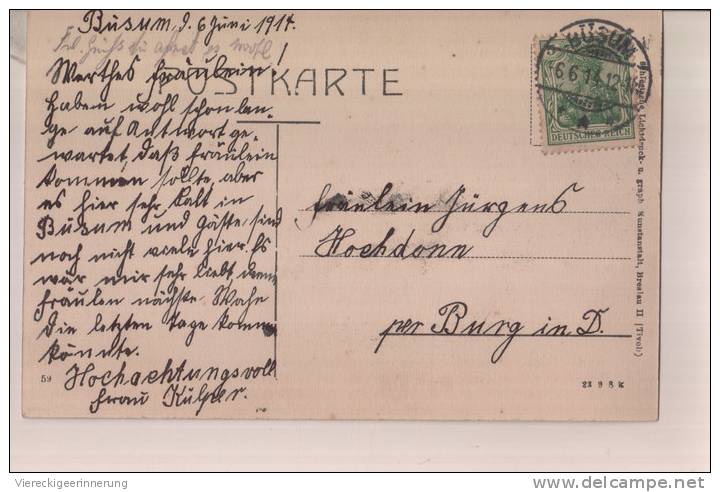 Büsum, d. 6 Juni 1914.
Werthes Fräulein!
Haben wohl schon lan-
ge auf Antwort ge-
wartet, daß Fräulein
kommen sollte, aber
es hier sehr kalt in
Büsum und Gäste, sind
noch nicht viele hier. Es
wär mir sehr liebt, wenn
Fräulen nächste Woche
die letzten Tage kommen
könnte.
Hochachtungsvoll
Frau Külper.
POSTKARTE
BÜSUM
6.6.14.12
DEUTSCHES REICH
Fräulein Jürgens
Hochdonn
per Burg in D.
Lichtdruck- u. graph Kunstanstalt, Breslau II (Tivoli)
59
Viereckigeerinnerung
www.delcampe.net